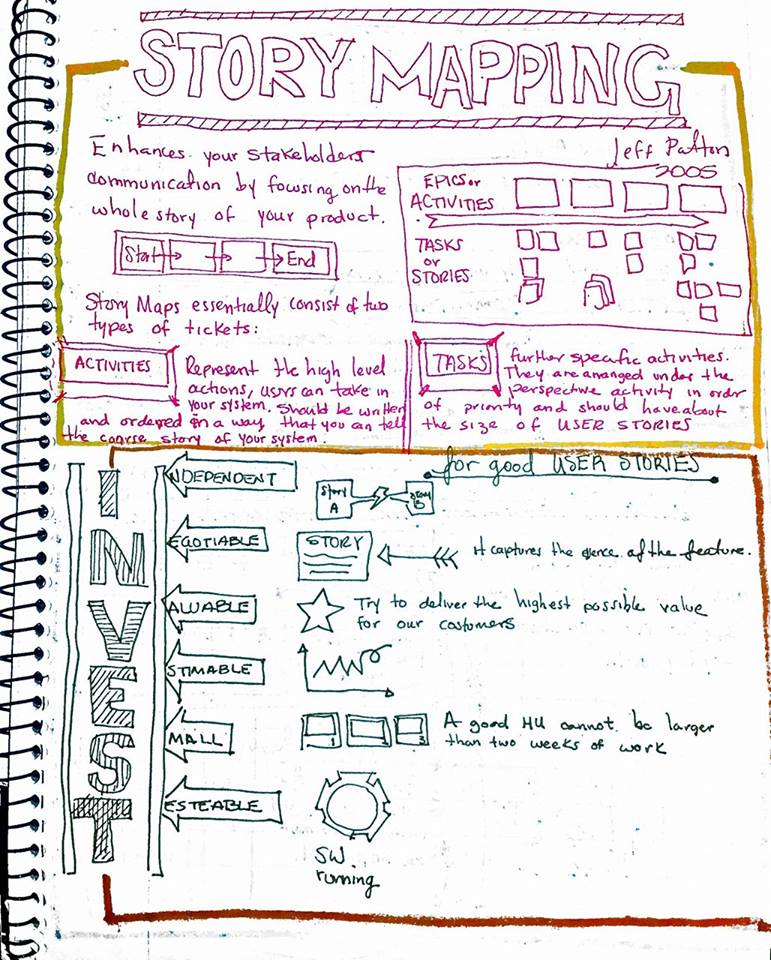 STORY MAPPING
Enhances your stakeholders
communication by focusing on the
whole story of your product.
Start
End
Jeff Patton
2005
EPICS or
ACTIVITIES
TASKS
or
STORIES
Story Maps essentially consist of two
types of tickets:
ACTIVITIES
Represent the high level
actions, users can take in
your system. Should be written
and ordered in a way that you can tell
the coarse story of your system.
TASKS
further specific activities.
They are arranged under the
perspective activity in order
of priority and should have about
the size of USER STORIES
for good USER STORIES
INVEST
NDEPENDENT
Story
A
Story
B
EGOTIABLE
STORY
It captures the esence of the feature.
ALUABLE
Try to deliver the highest possible value
for our costumers
STIMABLE
MALL
1
3
A good HU cannot be larger
than two weeks of work
ESTEABLE
SW.
running